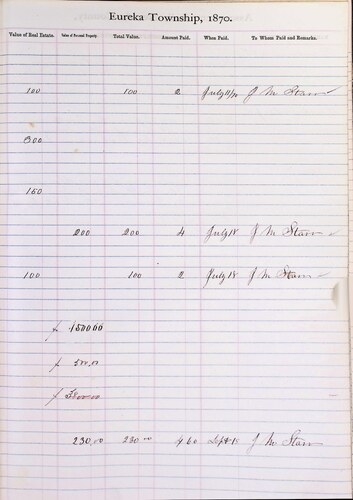 Eureka Township, 1870.
Value of Real Estate. Value of Personal Property. Total Value. Amount Paid. When Paid. To Whom Paid and Remarks.
100 100 2 July 11/70 J M Starr
300
160
200 200 4 July 18 J M Starr
100 100 2 July 18 J M Starr
150000
500.00
230,00 230 00 4 60 Sept 18 J M Starr